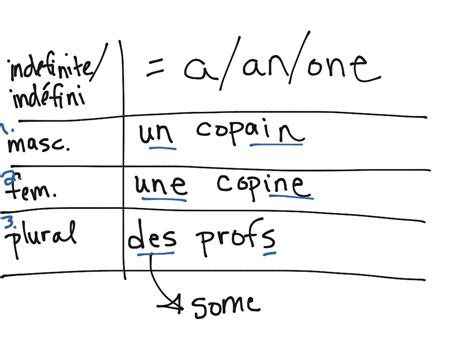 indefinite/ = a/an/one
indéfini
1. masc. un copain
2. fem. une copine
3. plural des profs
some